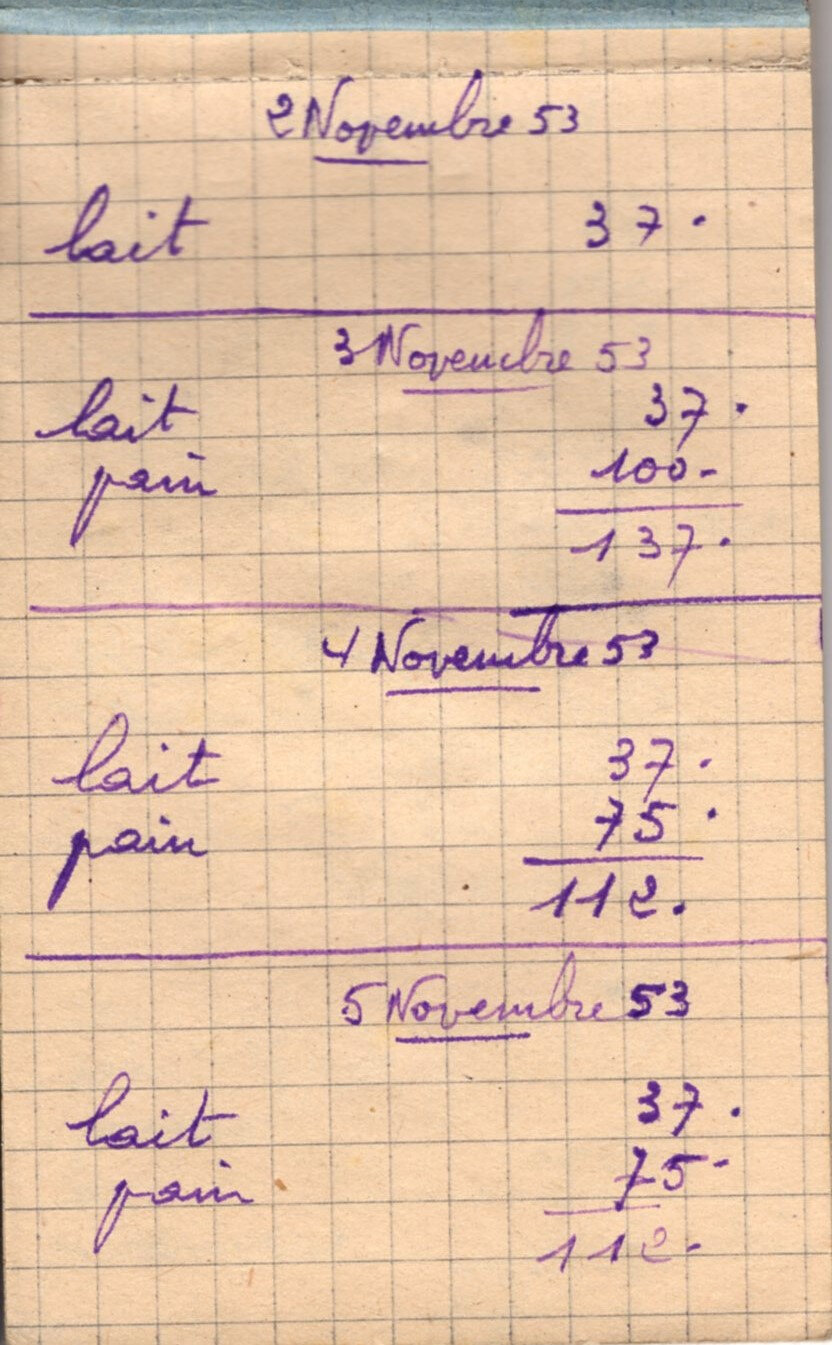 2 Novembre 53
lait 37.
3 Novembre 53
lait 37.
pain 100-
137.
4 Novembre 53
lait 37.
pain 75.
112.
5 Novembre 53
lait 37.
pain 75-
112-